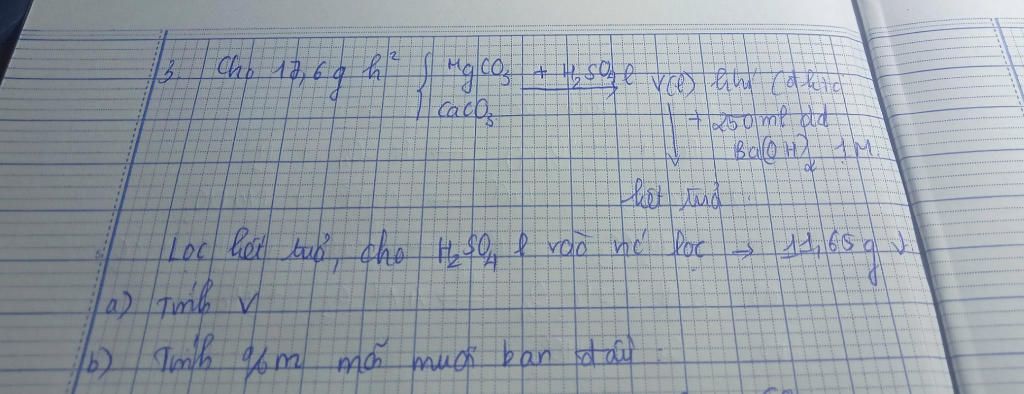 3. Cho 17,6g h² { MgCO₃ + H₂SO₄ l V(l) khí (đktc)
CaCO₃ ↓ + 250ml dd
Ba(OH)₂ 1M.
kết tuả
Lọc kết tuả, cho H₂SO₄ l vào nc lọc → 11,65g ↓
a) Tính V
b) Tính %m mỗi muối ban đầu